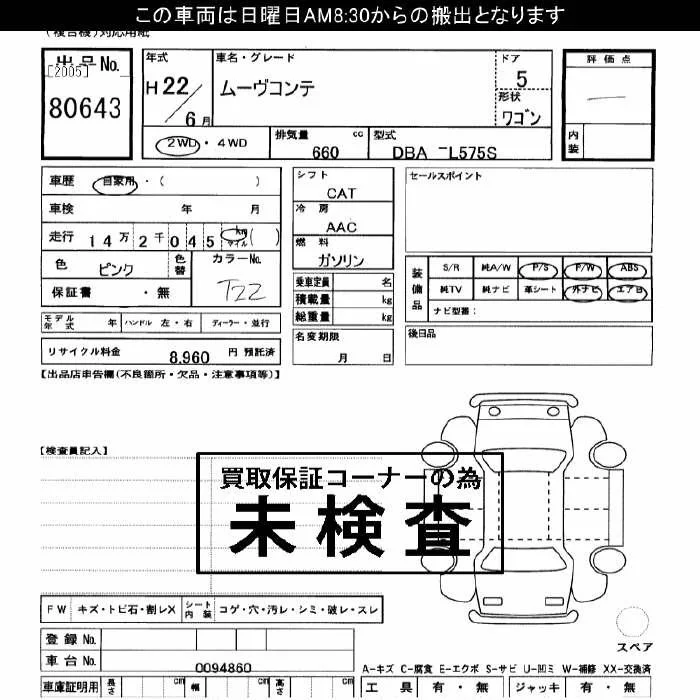 この車両は日曜日AM8:30からの搬出となります
(複合機)対応用紙
出品No.
[2005]
80643
年式
H22/6月
車名・グレード
ムーヴコンテ
ドア
5
形状
ワゴン
評価点
内装
2WD・4WD
排気量 cc
660
型式
DBA -L575S
車歴 自家用・( )
車検 年 月
走行 14万2千045 km マイル ( )
色 ピンク
色替
カラーNo.
T22
保証書 ・無
シフト
CAT
冷房
AAC
燃料
ガソリン
乗車定員 名
積載量 kg
総重量 kg
セールスポイント
装備品
S/R 純A/W P/S P/W ABS
純TV 純ナビ 革シート 外ナビ エアB
ナビ型番:
モデル年式 年 ハンドル 左・右 ディーラー・並行
名変期限
月 日
後日品
リサイクル料金 8,960 円 預託済
【出品店申告欄(不良箇所・欠品・注意事項等)】
【検査員記入】
買取保証コーナーの為
未検査
FW キズ・トビ石・割レX シート内装 コゲ・穴・汚レ・シミ・破レ・スレ
登録No.
車台No. 0094860
スペア
A-キズ C-腐食 E-エクボ S-サビ U-凹ミ W-補修 XX-交換済
車庫証明用 長さ cm 幅 cm 高さ cm
工具 有・無 ジャッキ 有・無